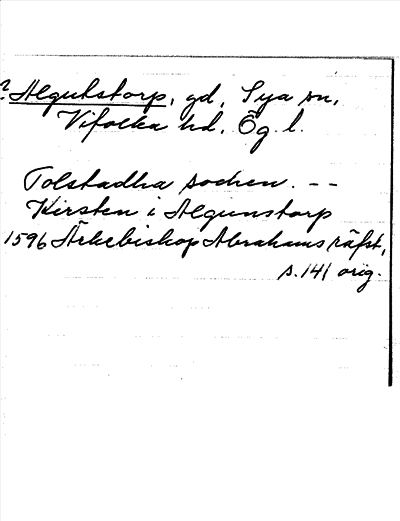 ? Algutstorp, gd, Sya sn,
Vifolka hd, Ög. l.
Tolstadha sochen. --
Kirsten i Algunstorp
1596 Ärkebiskop Abrahams räfst,
s. 141 orig.